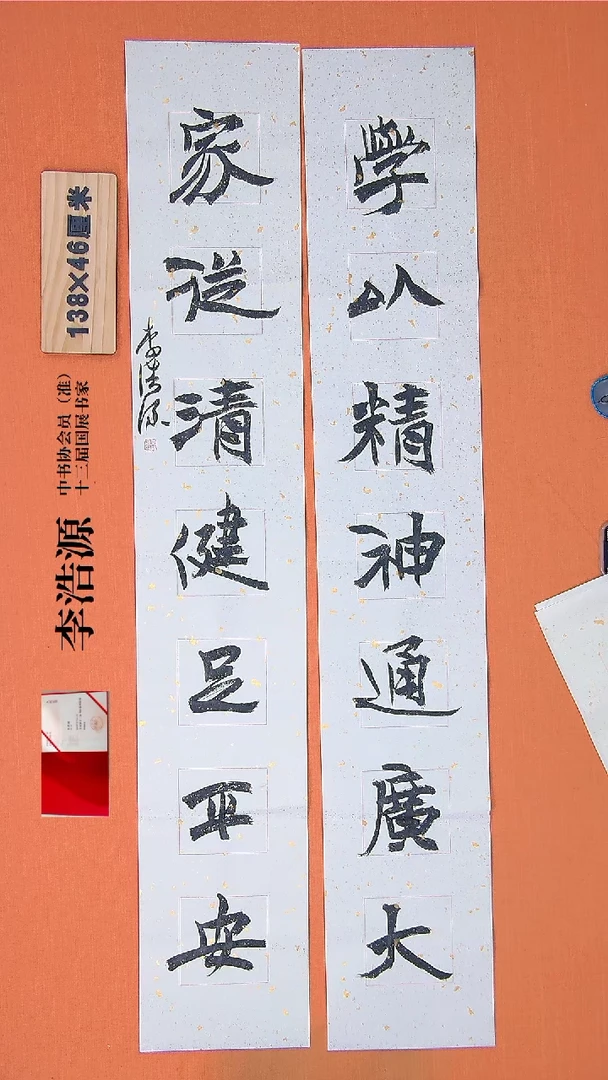 學以精神通廣大
家從清健足平安
李浩源
138×46厘米
中书协会员（准）
十三届国展书家
李浩源